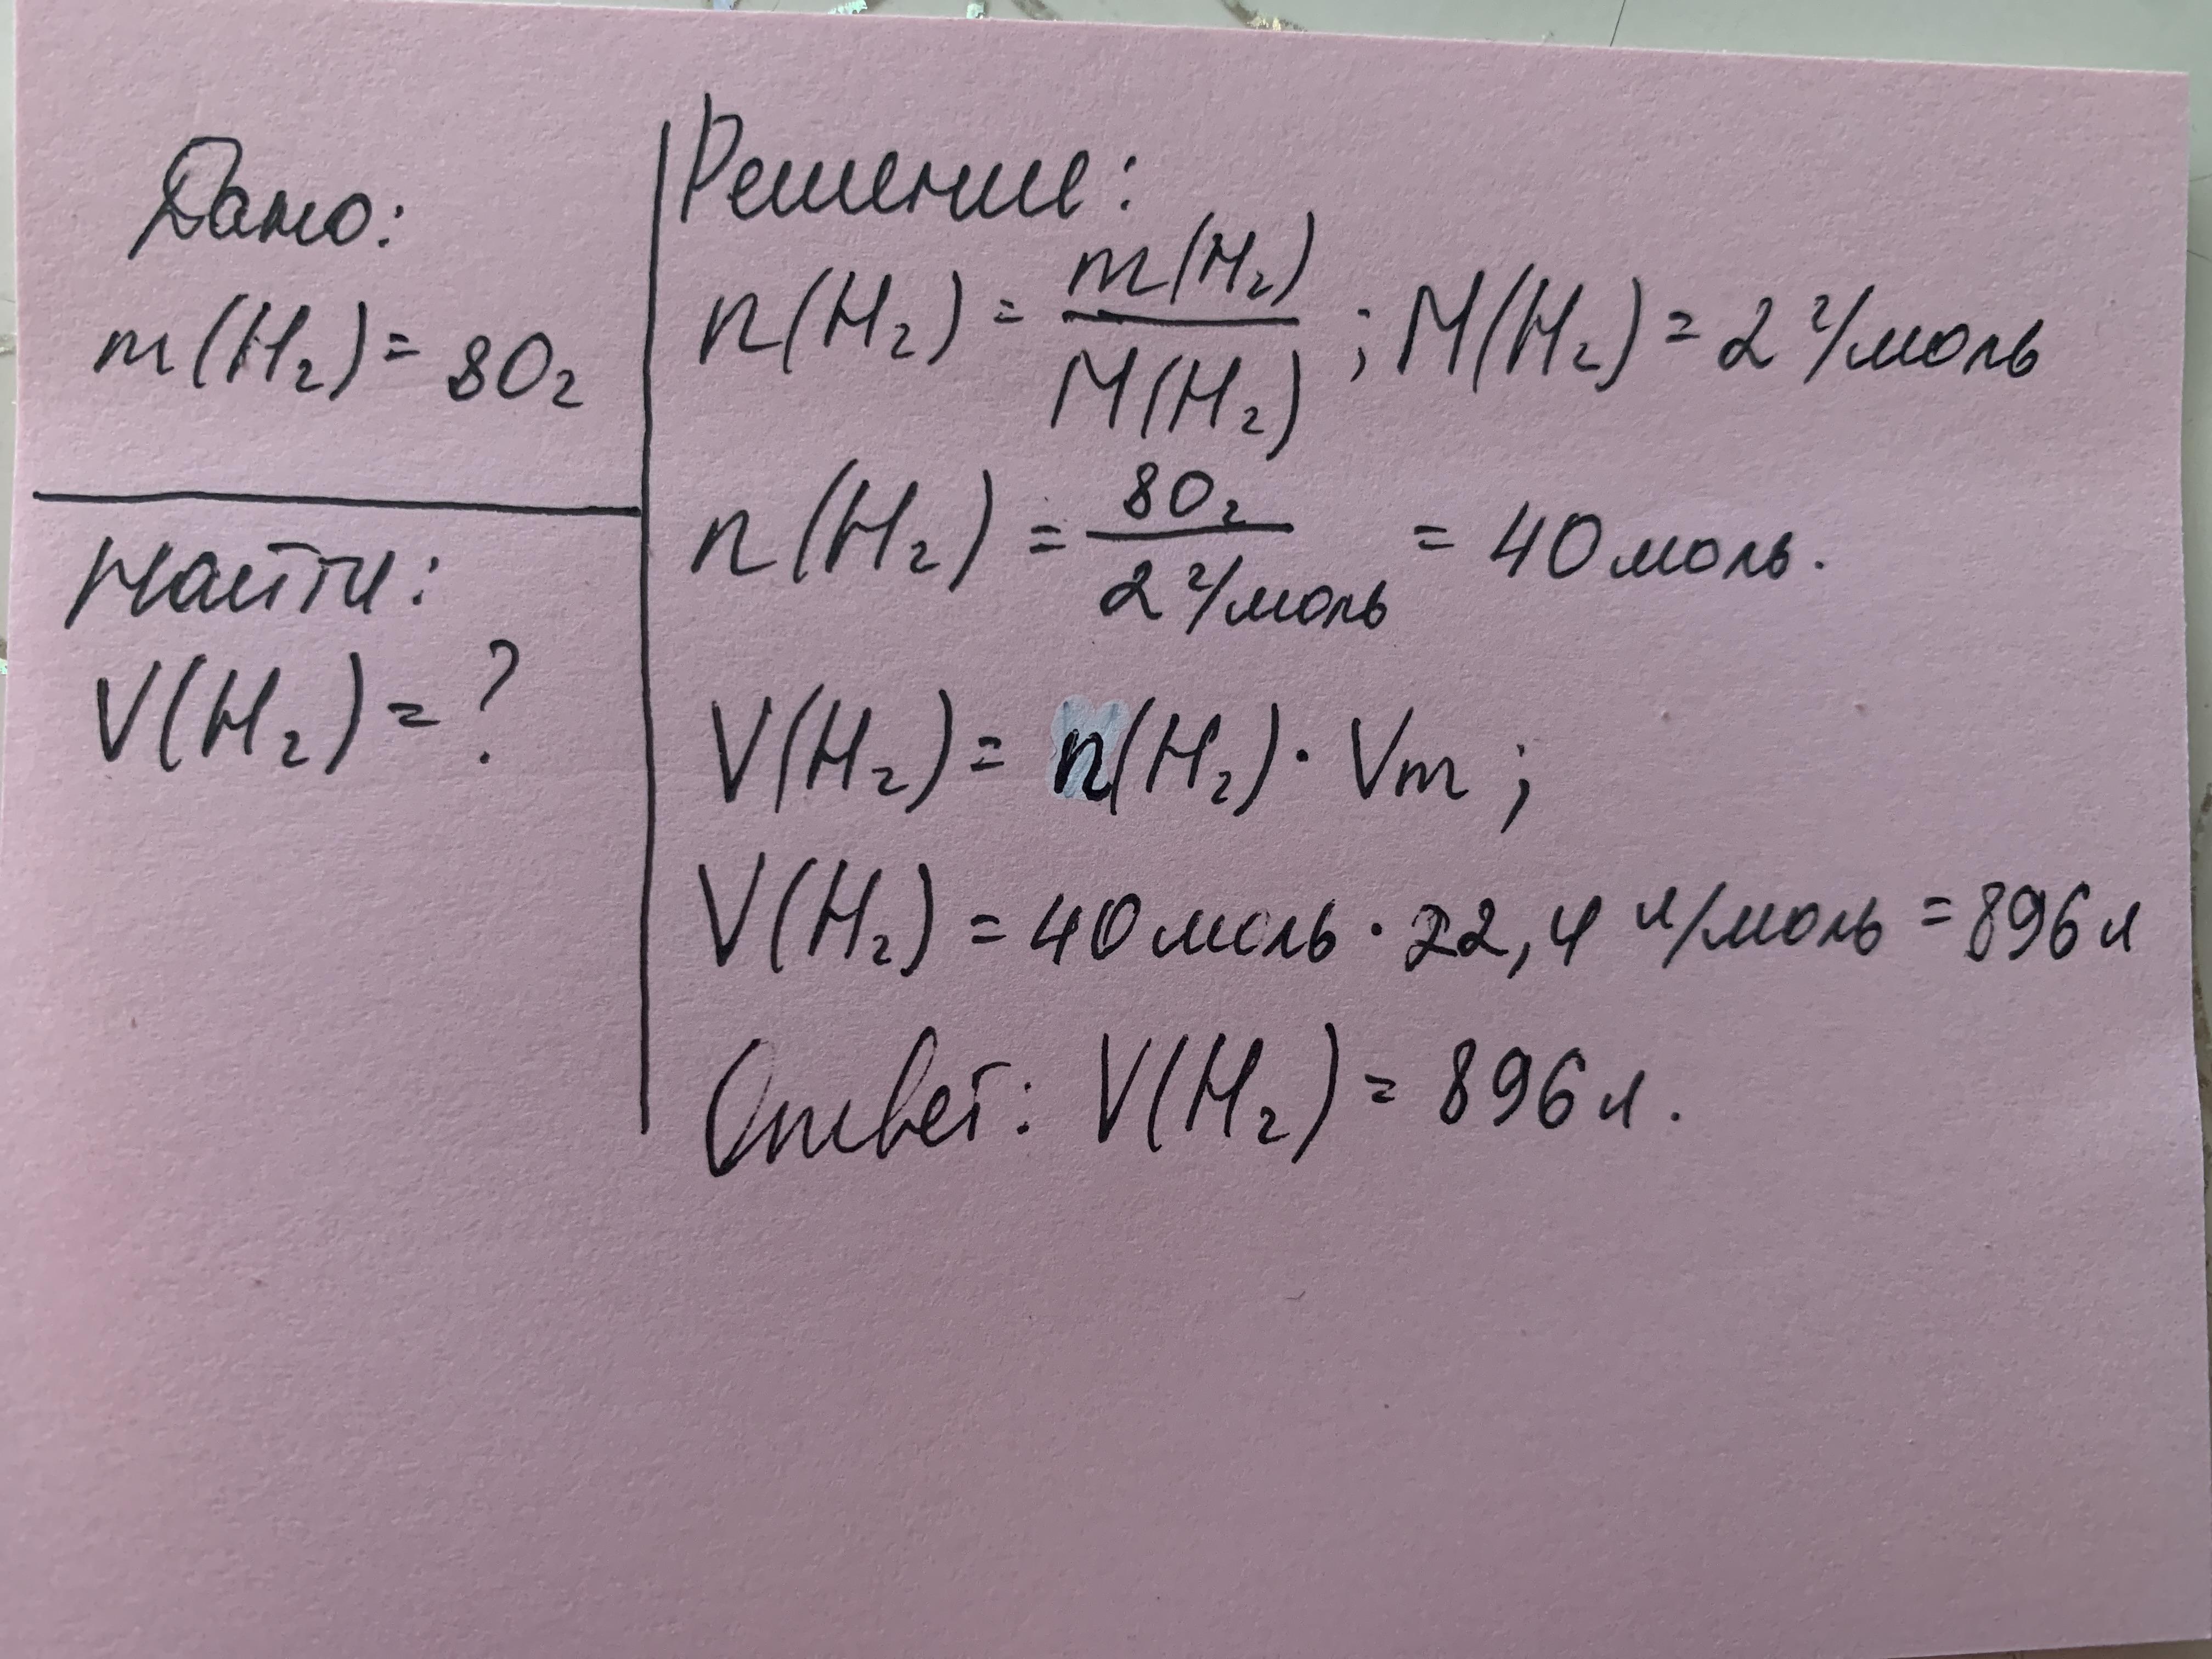 Дано:
m(H₂) = 80г
Найти:
V(H₂) = ?
Решение:
n(H₂) = m(H₂) / M(H₂) ; M(H₂) = 2 г/моль
n(H₂) = 80г / 2 г/моль = 40 моль.
V(H₂) = n(H₂) · Vm ;
V(H₂) = 40 моль · 22,4 л/моль = 896 л
Ответ: V(H₂) = 896 л.